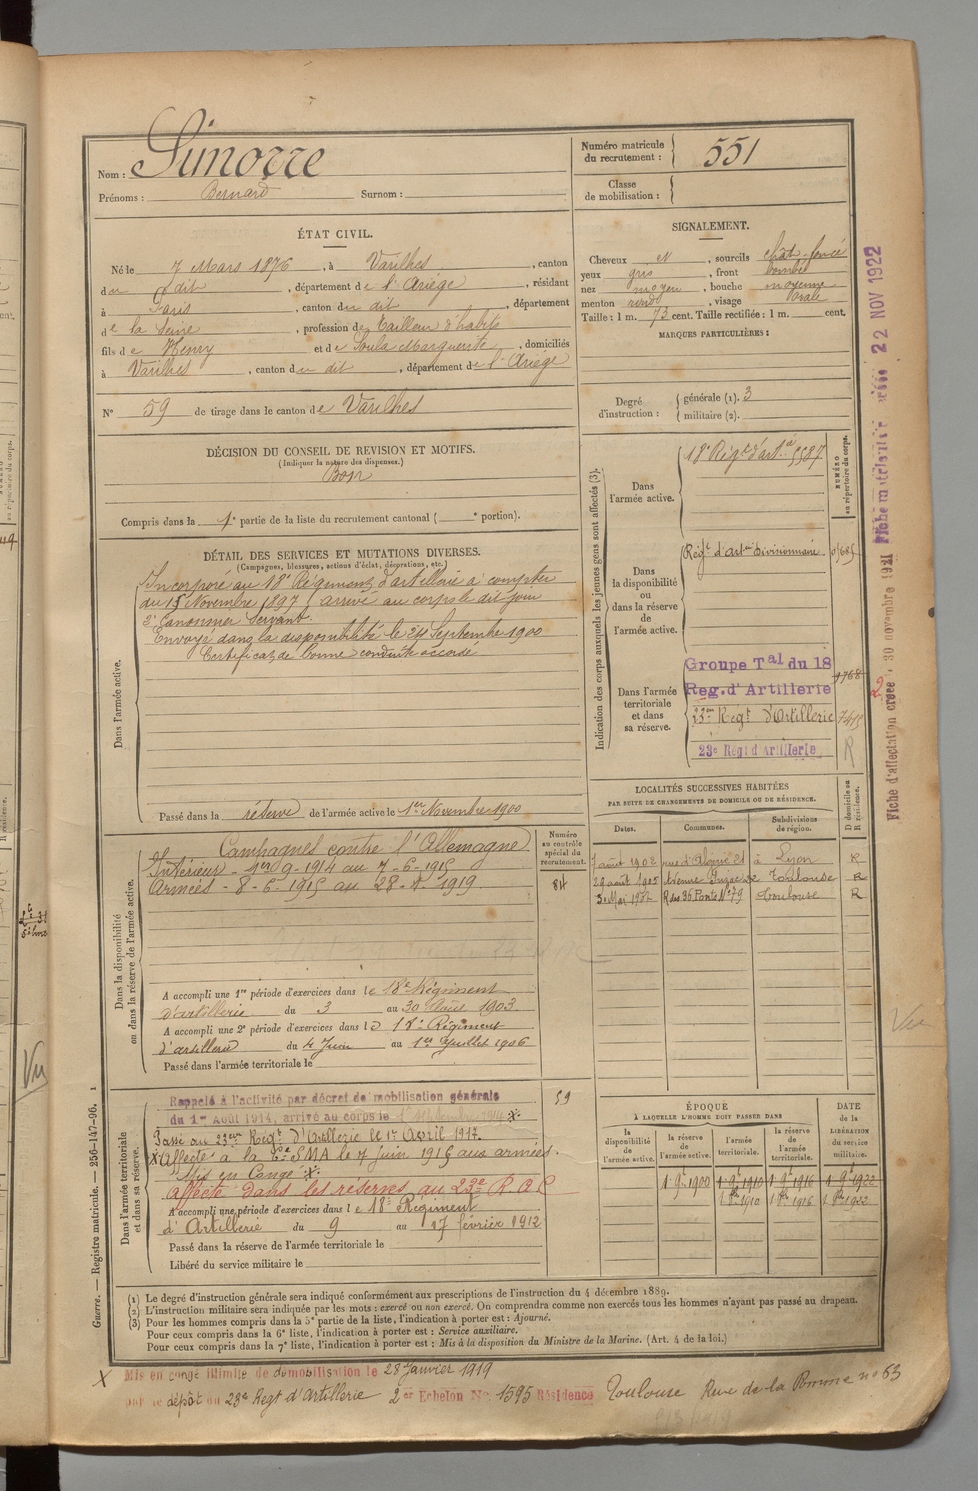 Nom : Simorre
Prénoms : Bernard Surnom :
Numéro matricule du recrutement : 551
Classe de mobilisation :
ÉTAT CIVIL.
Né le 7 Mars 1876, à Varilhes, canton
du dit, département de l'Ariège, résidant
à Paris, canton du dit, département
de la Seine, profession de Tailleur d'habits
fils de Henry et de Soula Marguerite, domiciliés
à Varilhes, canton du dit, département de l'Ariège
N° 59 de tirage dans le canton de Varilhes
SIGNALEMENT.
Cheveux N, sourcils chât. foncé
yeux gris, front bombé
nez moyen, bouche moyenne
menton rond, visage ovale
Taille : 1 m. 73 cent. Taille rectifiée : 1 m. cent.
MARQUES PARTICULIÈRES :
Degré d'instruction : générale (1). 3
militaire (2).
DÉCISION DU CONSEIL DE REVISION ET MOTIFS.
(Indiquer la nature des dispenses.)
Bon
Compris dans la 1e partie de la liste du recrutement cantonal ( e portion).
DÉTAIL DES SERVICES ET MUTATIONS DIVERSES.
(Campagnes, blessures, actions d'éclat, décorations, etc.)
Dans l'armée active.
Incorporé au 18e Régiment d'artillerie à compter
du 15 Novembre 1897, arrivé au corps le dit jour
2e Canonnier Servant.
Envoyé dans la disponibilité le 24 Septembre 1900
Certificat de bonne conduite accordé
Passé dans la réserve de l'armée active le 1er Novembre 1900
Indication des corps auxquels les jeunes gens sont affectés (3).
NUMÉRO au répertoire du corps.
Dans l'armée active.
18e Régt d'art.
Dans la disponibilité ou dans la réserve de l'armée active.
Régt d'art. Divisionnaire
Dans l'armée territoriale et dans sa réserve.
Groupe Tal du 18
Reg. d'Artillerie
23e Régt d'Artillerie
23e Régt d'Artillerie
R
LOCALITÉS SUCCESSIVES HABITÉES
PAR SUITE DE CHANGEMENTS DE DOMICILE OU DE RÉSIDENCE.
Dates. Communes. Subdivisions de région. D domicile ou R résidence.
7 août 1902 rue d'Algérie 21 à Lyon R
29 août 1905 Avenue Toulouse R
3 Mai 1912 R des 36 Ponts N° 79 Toulouse R
Dans la disponibilité ou dans la réserve de l'armée active.
Numéro au contrôle spécial du recrutement.
84
Campagnes contre l'Allemagne
Intérieur - 1er 9-1914 au 7-6-1915
Armées - 8-6-1915 au 28-1-1919.
A accompli une 1re période d'exercices dans le 18e Régiment
d'artillerie du 3 au 30 Août 1903.
A accompli une 2e période d'exercices dans le 18e Régiment
d'artillerie du 4 Juin au 1er Juillet 1906
Passé dans l'armée territoriale le
Dans l'armée territoriale et dans sa réserve.
59
Rappelé à l'activité par décret de mobilisation générale
du 1er Août 1914, arrivé au corps le
Passé au 23ème Régt d'Artillerie le 1er Avril 1917.
Affecté à la SMA le 7 juin 1915 aux armées.
Mis en Congé
affecté dans les réserves au 23e R.A.C
A accompli une période d'exercices dans le 18e Régiment
d'Artillerie du 9 au 17 février 1912
Passé dans la réserve de l'armée territoriale le
Libéré du service militaire le
ÉPOQUE
À LAQUELLE L'HOMME DOIT PASSER DANS
DATE de la LIBÉRATION du service militaire.
la disponibilité de l'armée active. la réserve de l'armée active. l'armée territoriale. la réserve de l'armée territoriale.
Guerre. — Registre matricule. — 256-147-96.
(1) Le degré d'instruction générale sera indiqué conformément aux prescriptions de l'instruction du 4 décembre 1889.
(2) L'instruction militaire sera indiquée par les mots : exercé ou non exercé. On comprendra comme non exercés tous les hommes n'ayant pas passé au drapeau.
(3) Pour les hommes compris dans la 5e partie de la liste, l'indication à porter est : Ajourné.
Pour ceux compris dans la 6e liste, l'indication à porter est : Service auxiliaire.
Pour ceux compris dans la 7e liste, l'indication à porter est : Mis à la disposition du Ministre de la Marine. (Art. 4 de la loi.)
X Mis en congé illimité de démobilisation le 28 Janvier 1919
dépôt du 23e Regt d'Artillerie 2er Echelon N° 1595 Résidence Toulouse Rue de la Pomme n° 63
Fiche d'affectation créée 30 novembre 1921 Fiche matricule créée 22 NOV 1922
Vu
Vu